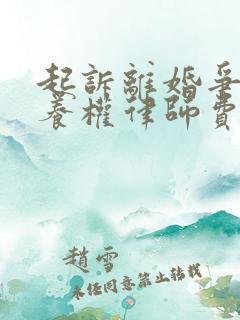 起訴離婚爭
養權律師費
趙雪
未經同意禁止轉載